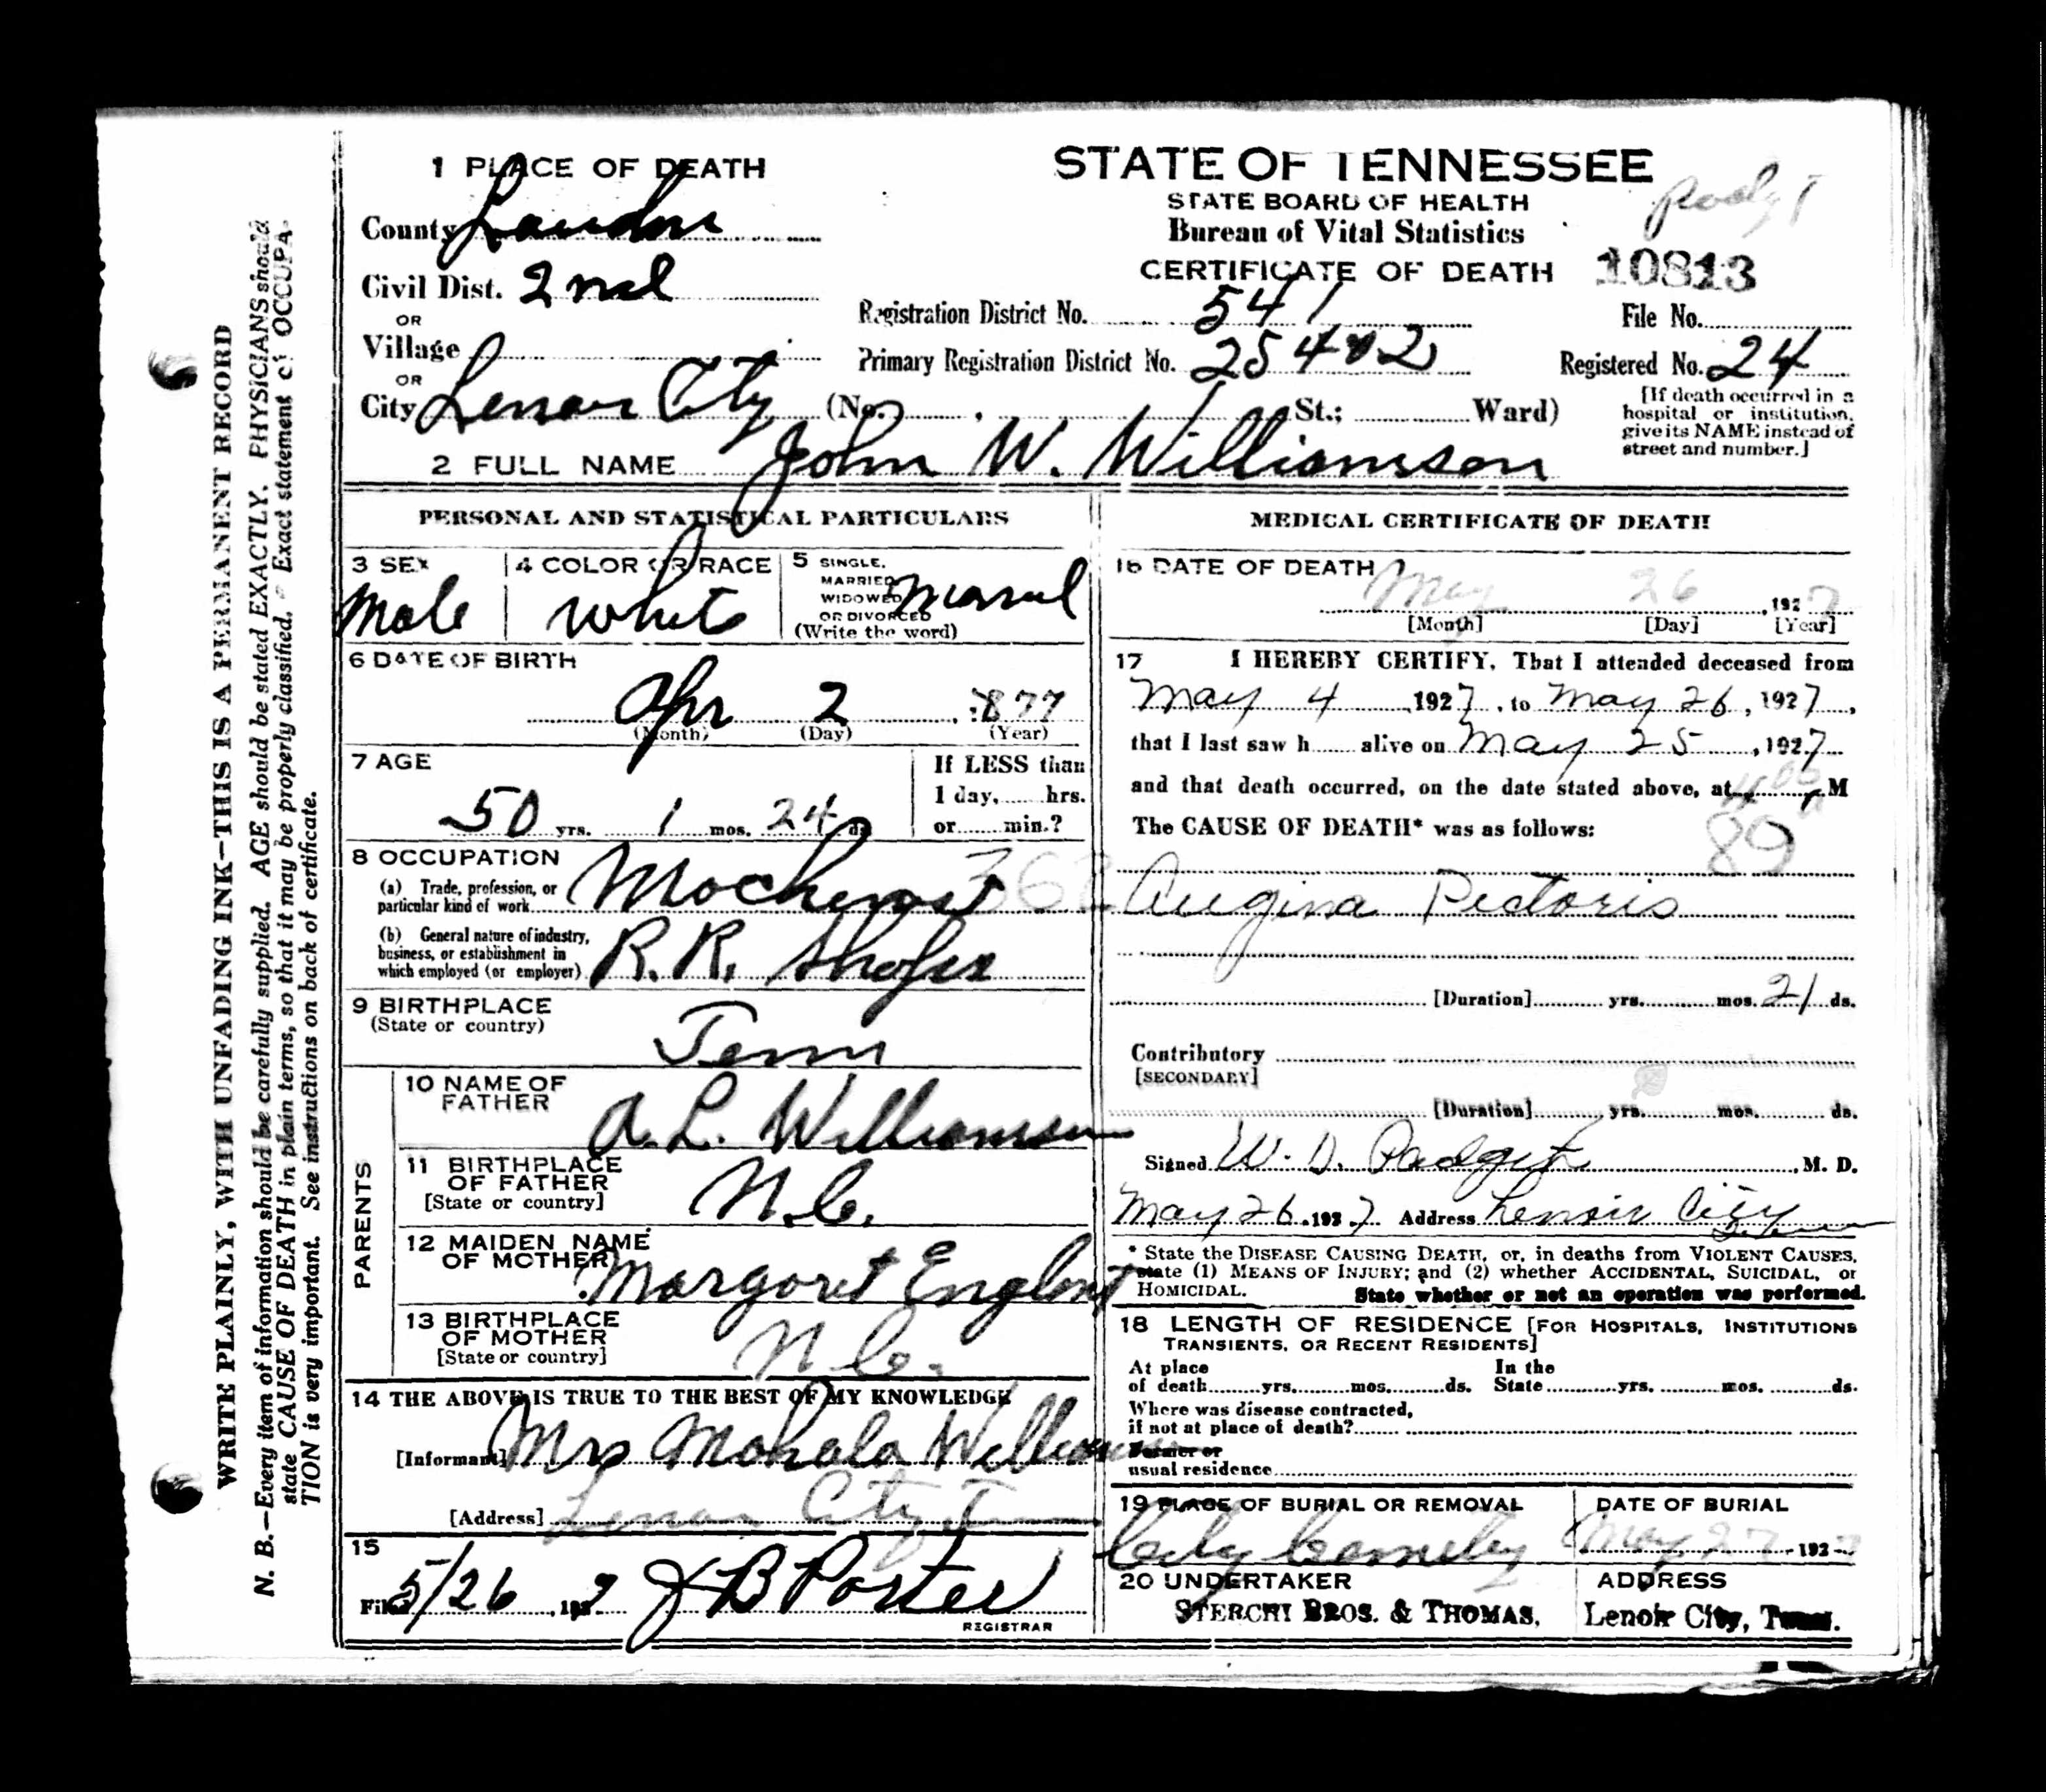 WRITE PLAINLY, WITH UNFADING INK—THIS IS A PERMANENT RECORD
N. B.—Every item of information should be carefully supplied. AGE should be stated EXACTLY. PHYSICIANS should
state CAUSE OF DEATH in plain terms, so that it may be properly classified. Exact statement of OCCUPA-
TION is very important. See instructions on back of certificate.
1 PLACE OF DEATH
County Loudon
Civil Dist. 2nd
OR
Village
OR
City Lenoir City (No. , St.; Ward)
STATE OF TENNESSEE
STATE BOARD OF HEALTH
Bureau of Vital Statistics
CERTIFICATE OF DEATH
10813
Registration District No. 541
File No.
Primary Registration District No. 25402
Registered No. 24
[If death occurred in a
hospital or institution,
give its NAME instead of
street and number.]
2 FULL NAME John W. Williamson
PERSONAL AND STATISTICAL PARTICULARS
3 SEX
Male
4 COLOR OR RACE
White
5 SINGLE,
MARRIED
WIDOWED
OR DIVORCED
(Write the word)
6 DATE OF BIRTH
Apr 2, 1877
(Month) (Day) (Year)
7 AGE
50 yrs. 1 mos. 24 ds
If LESS than
1 day, hrs.
or min.?
8 OCCUPATION
(a) Trade, profession, or
particular kind of work Machenist
362
(b) General nature of industry,
business, or establishment in
which employed (or employer) R. R. Shops
9 BIRTHPLACE
(State or country)
Tenn
PARENTS
10 NAME OF
FATHER A. L. Williamson
11 BIRTHPLACE
OF FATHER
[State or country] N. C.
12 MAIDEN NAME
OF MOTHER Margaret
13 BIRTHPLACE
OF MOTHER
[State or country] N. C.
14 THE ABOVE IS TRUE TO THE BEST OF MY KNOWLEDGE
[Informant] Mrs Mahala
[Address] Lenoir City
15
Filed 5/26, 1927 J B Porter
REGISTRAR
MEDICAL CERTIFICATE OF DEATH
16 DATE OF DEATH
May 26, 1927
[Month] [Day] [Year]
17 I HEREBY CERTIFY, That I attended deceased from
May 4, 1927, to May 26, 1927,
that I last saw h alive on May 25, 1927
and that death occurred, on the date stated above, at M
The CAUSE OF DEATH* was as follows:
89
Angina Pectoris
[Duration] yrs. mos. 21 ds.
Contributory
[SECONDARY]
[Duration] yrs. mos. ds.
Signed W. D. Padgett, M. D.
May 26, 1927 Address Lenoir City
* State the DISEASE CAUSING DEATH, or, in deaths from VIOLENT CAUSES,
state (1) MEANS OF INJURY; and (2) whether ACCIDENTAL, SUICIDAL, or
HOMICIDAL. State whether or not an operation was performed.
18 LENGTH OF RESIDENCE [FOR HOSPITALS, INSTITUTIONS
TRANSIENTS, OR RECENT RESIDENTS]
At place
of death yrs. mos. ds.
In the
State yrs. mos. ds.
Where was disease contracted,
if not at place of death?
Former or
usual residence
19 PLACE OF BURIAL OR REMOVAL
City Cemetey
DATE OF BURIAL
May 27, 192
20 UNDERTAKER
STERCHI BROS. & THOMAS,
ADDRESS
Lenoir City, Tenn.